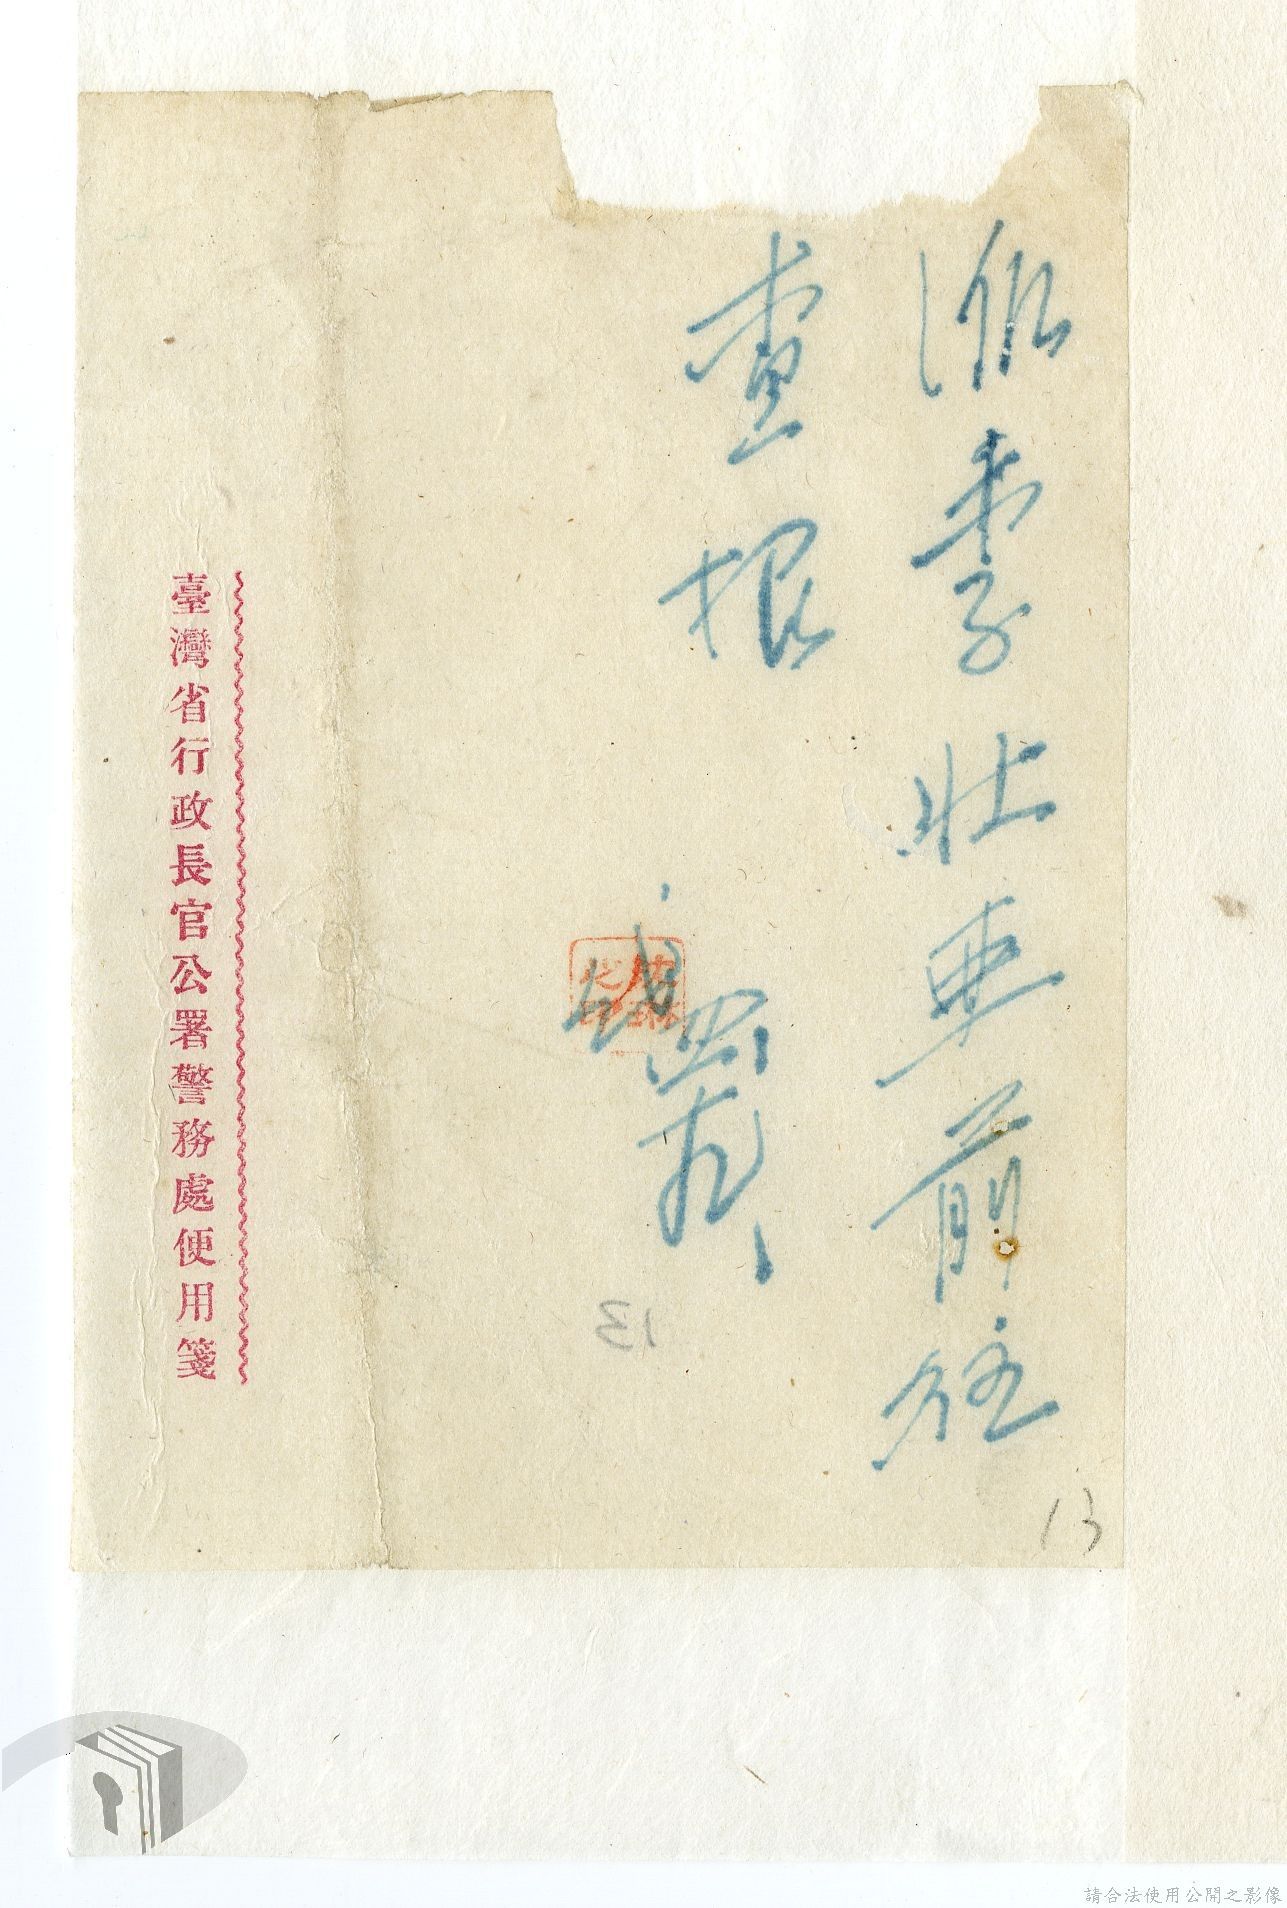 派李壯東前往
查報
九
13
13
臺灣省行政長官公署警務處便用箋
請合法使用公開之影像